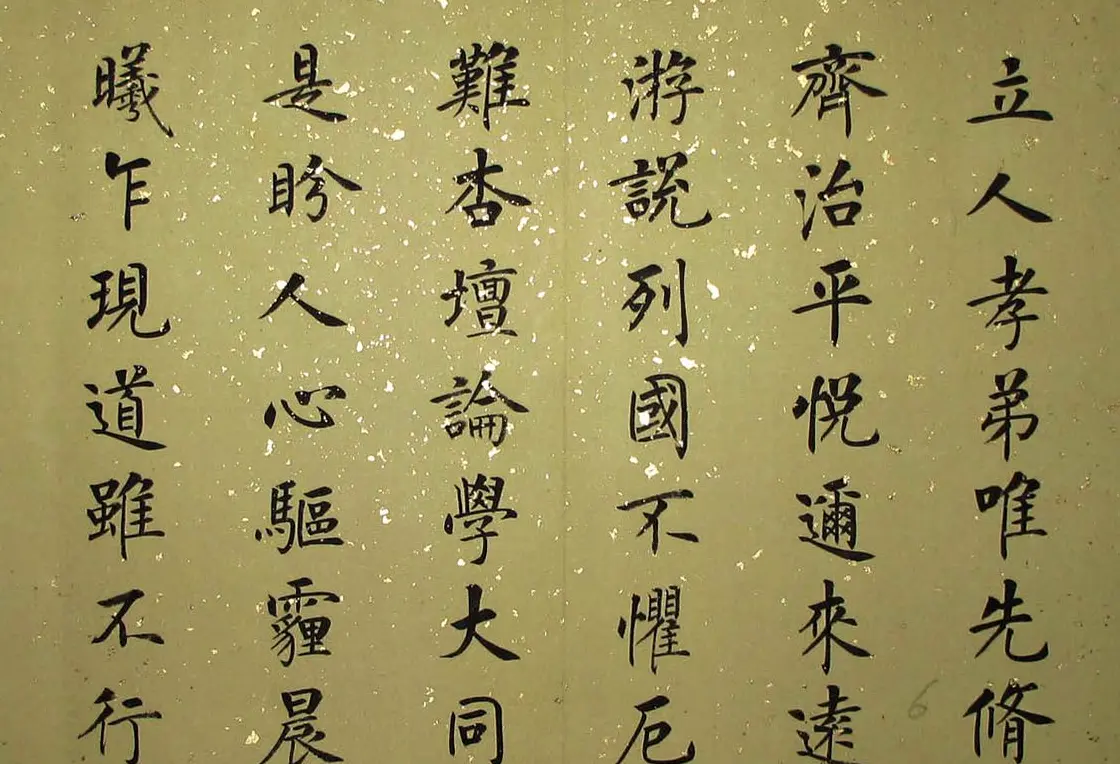 立人孝弟唯先脩
齊治平悅邇來遠
游說列國不懼厄
難杏壇論學大同
是盼人心驅霾晨
曦乍現道雖不行
6